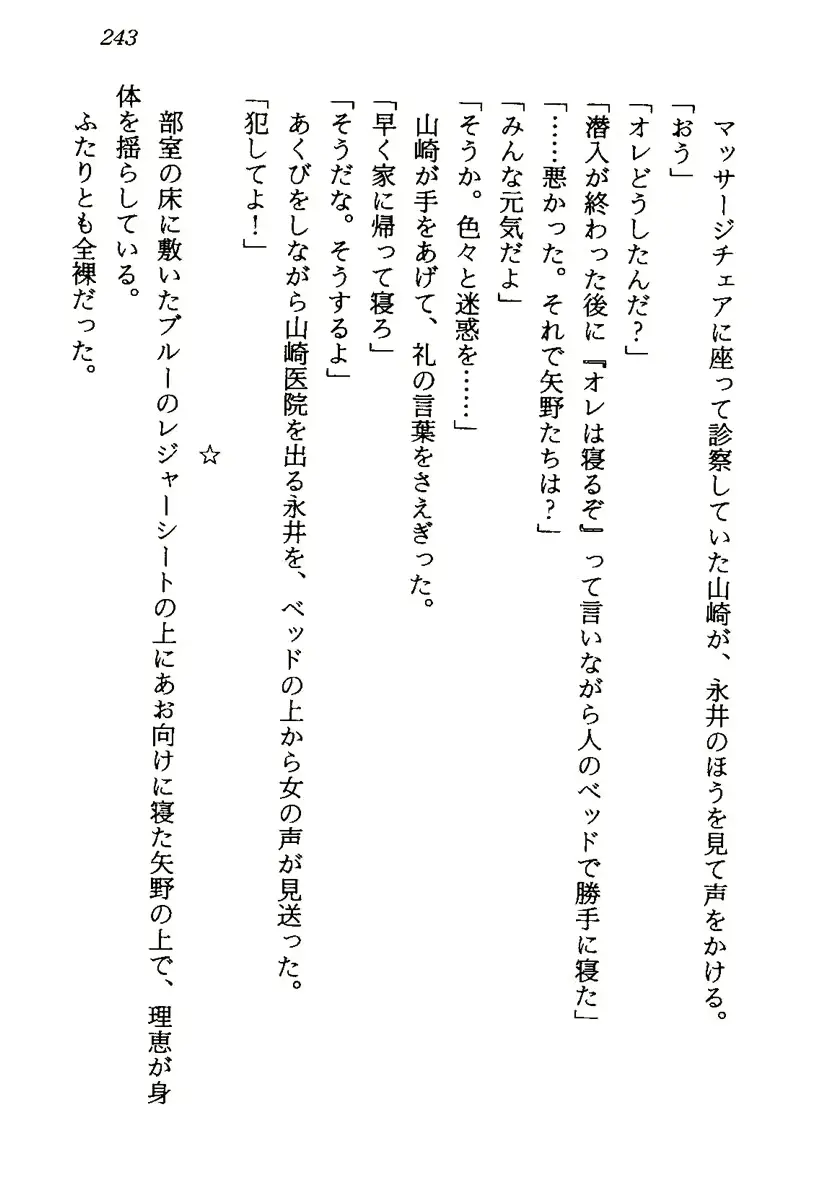 243
マッサージチェアに座って診察していた山崎が、永井のほうを見て声をかける。
「おう」
「オレどうしたんだ?」
「潜入が終わった後に『オレは寝るぞ』って言いながら人のベッドで勝手に寝た」
「……悪かった。それで矢野たちは?」
「みんな元気だよ」
「そうか。色々と迷惑を……」
山崎が手をあげて、礼の言葉をさえぎった。
「早く家に帰って寝ろ」
「そうだな。そうするよ」
あくびをしながら山崎医院を出る永井を、ベッドの上から女の声が見送った。
「犯してよ!」
☆
部室の床に敷いたブルーのレジャーシートの上にあお向けに寝た矢野の上で、理恵が身
体を揺らしている。
ふたりとも全裸だった。